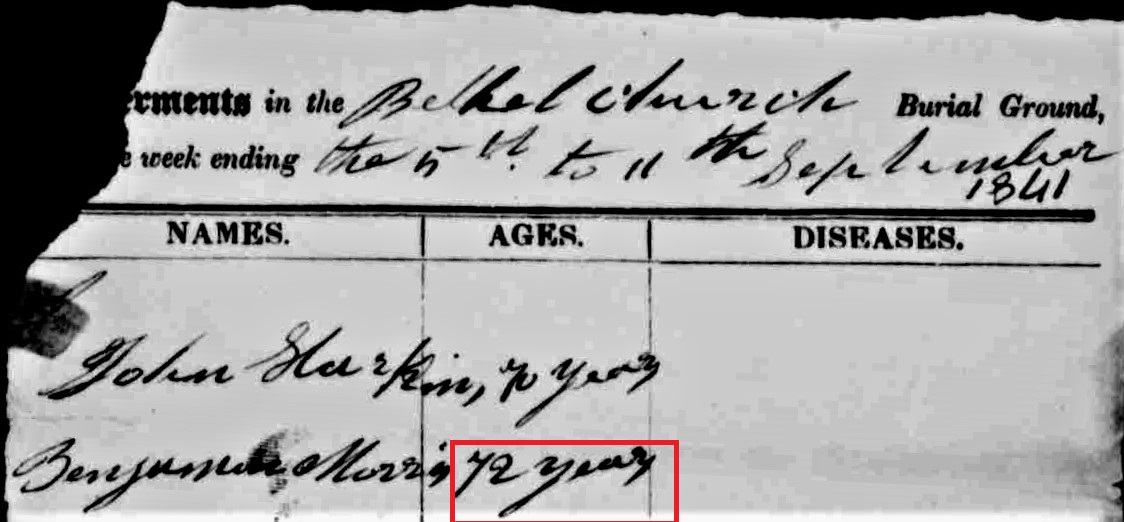 erments in the Bethel Church Burial Ground,
e week ending the 5th to 11th September
1841
NAMES. AGES. DISEASES.
John Harkin, 70 year
Benjamin Morris 72 year